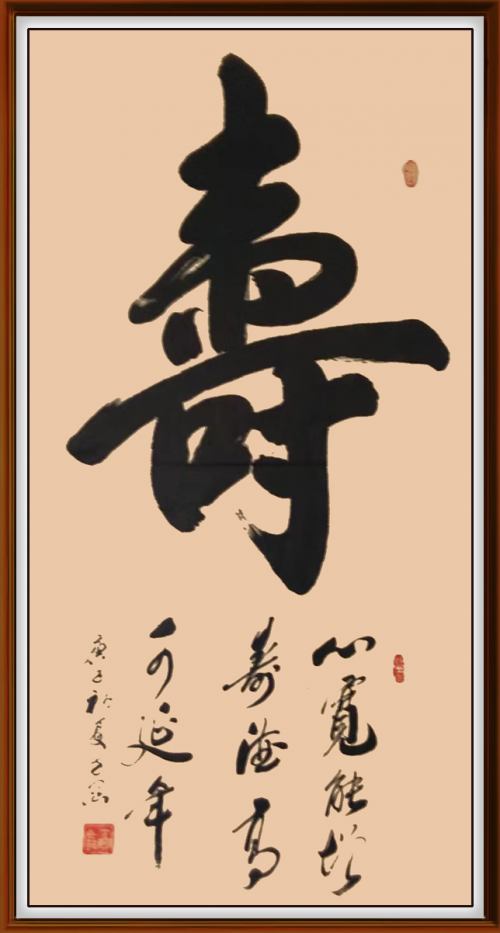 壽
心寬能增
壽德高
可延年
庚子初夏